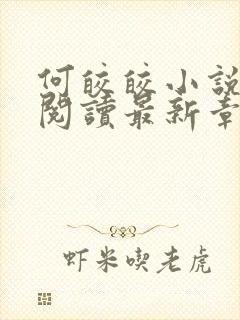 何皎皎小說
閱讀最新章
虾米喫老虎